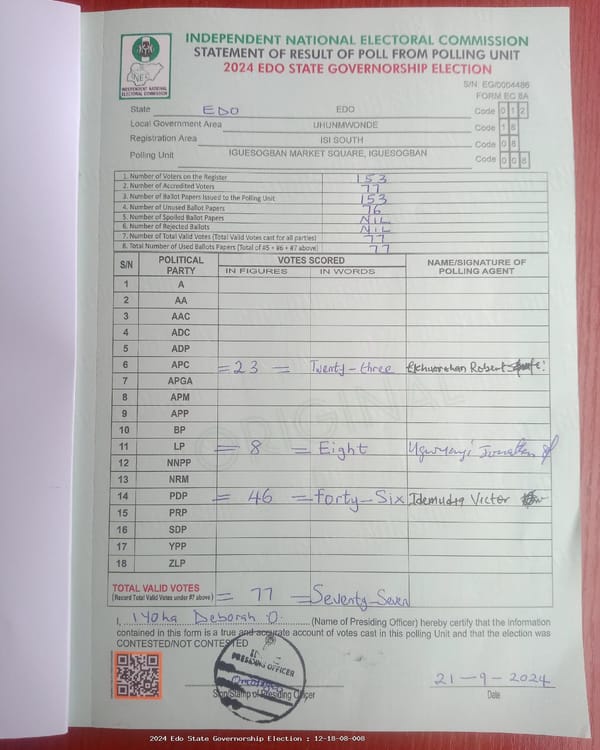 INDEPENDENT NATIONAL ELECTORAL COMMISSION
STATEMENT OF RESULT OF POLL FROM POLLING UNIT
2024 EDO STATE GOVERNORSHIP ELECTION
INDEPENDENT NATIONAL
ELECTORAL COMMISSION
S/N: EG/0004486
FORM EC 8A
State EDO EDO Code 0 1 2
Local Government Area UHUNMWONDE Code 1 8
Registration Area ISI SOUTH Code 0 8
Polling Unit IGUESOGBAN MARKET SQUARE, IGUESOGBAN Code 0 0 8
1. Number of Voters on the Register 153
2. Number of Accredited Voters 77
3. Number of Ballot Papers Issued to the Polling Unit 153
4. Number of Unused Ballot Papers 76
5. Number of Spoiled Ballot Papers NIL
6. Number of Rejected Ballots NIL
7. Number of Total Valid Votes (Total Valid Votes cast for all parties) 77
8. Total Number of Used Ballots Papers (Total of #5 + #6 + #7 above) 77
S/N POLITICAL PARTY VOTES SCORED NAME/SIGNATURE OF POLLING AGENT
IN FIGURES IN WORDS
1 A
2 AA
3 AAC
4 ADC
5 ADP
6 APC =23= Twenty-three Robert
7 APGA
8 APM
9 APP
10 BP
11 LP =8= Eight
12 NNPP
13 NRM
14 PDP =46= forty-Six Idemudia Victor
15 PRP
16 SDP
17 YPP
18 ZLP
ORIGINAL
TOTAL VALID VOTES =77=Seventy-Seven
(Record Total Valid Votes under #7 above)
I, Iyoha Deborah O. (Name of Presiding Officer) hereby certify that the information
contained in this form is a true and accurate account of votes cast in this polling Unit and that the election was
CONTESTED/NOT CONTESTED
PRESIDING OFFICER
Sign/Stamp of Presiding Officer
21-9-2024
Date
2024 Edo State Governorship Election : 12-18-08-008